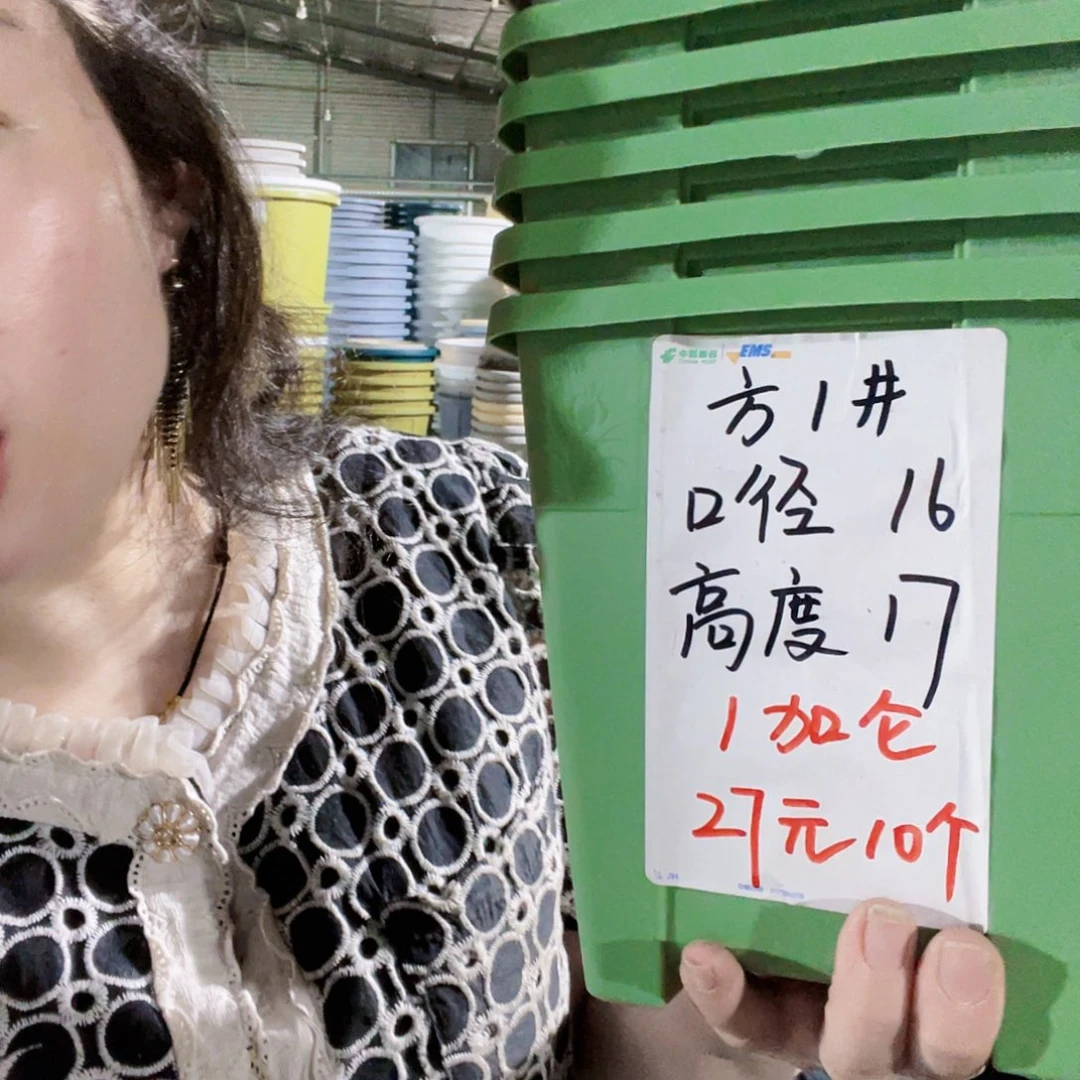 中国邮政 EMS
方1#
口径 16
高度 17
1加仑
27元10个